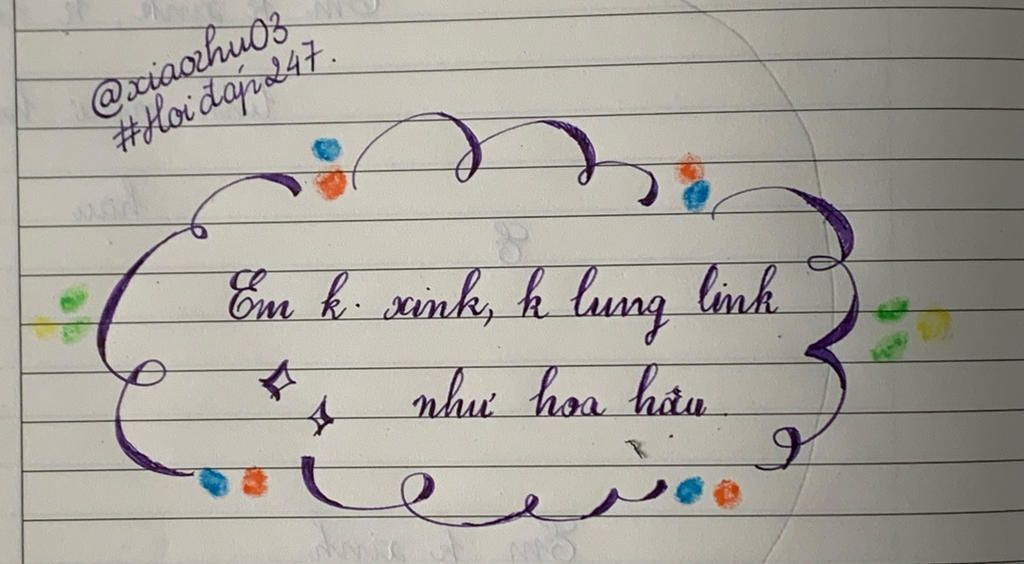 @xiaozhu03
#Hoiđáp247.
Em k. xinh, k lung linh
như hoa hậu